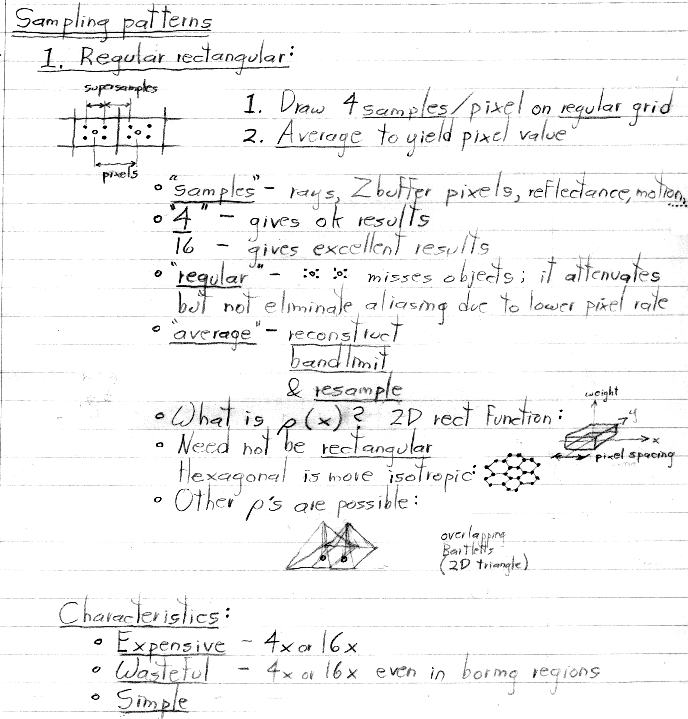 Sampling patterns
1. Regular rectangular:
supersamples
1. Draw 4 samples/pixel on regular grid
2. Average to yield pixel value
pixels
"samples" - rays, Zbuffer pixels, reflectance, motion,
"4" - gives ok results
16 - gives excellent results
"regular" - misses objects; it attenuates
but not eliminate aliasing due to lower pixel rate
"average" - reconstruct
bandlimit
& resample
weight
What is ρ(x)? 2D rect function:
y
x
Need not be rectangular
pixel spacing
Hexagonal is more isotropic:
Other ρ's are possible:
overlapping
Bartletts
(2D triangle)
Characteristics:
Expensive - 4x or 16x
Wasteful - 4x or 16x even in boring regions
Simple